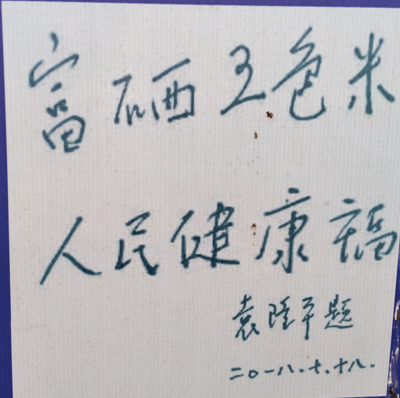 富硒五色米
人民健康福
袁隆平题
二〇一八.七.十八.